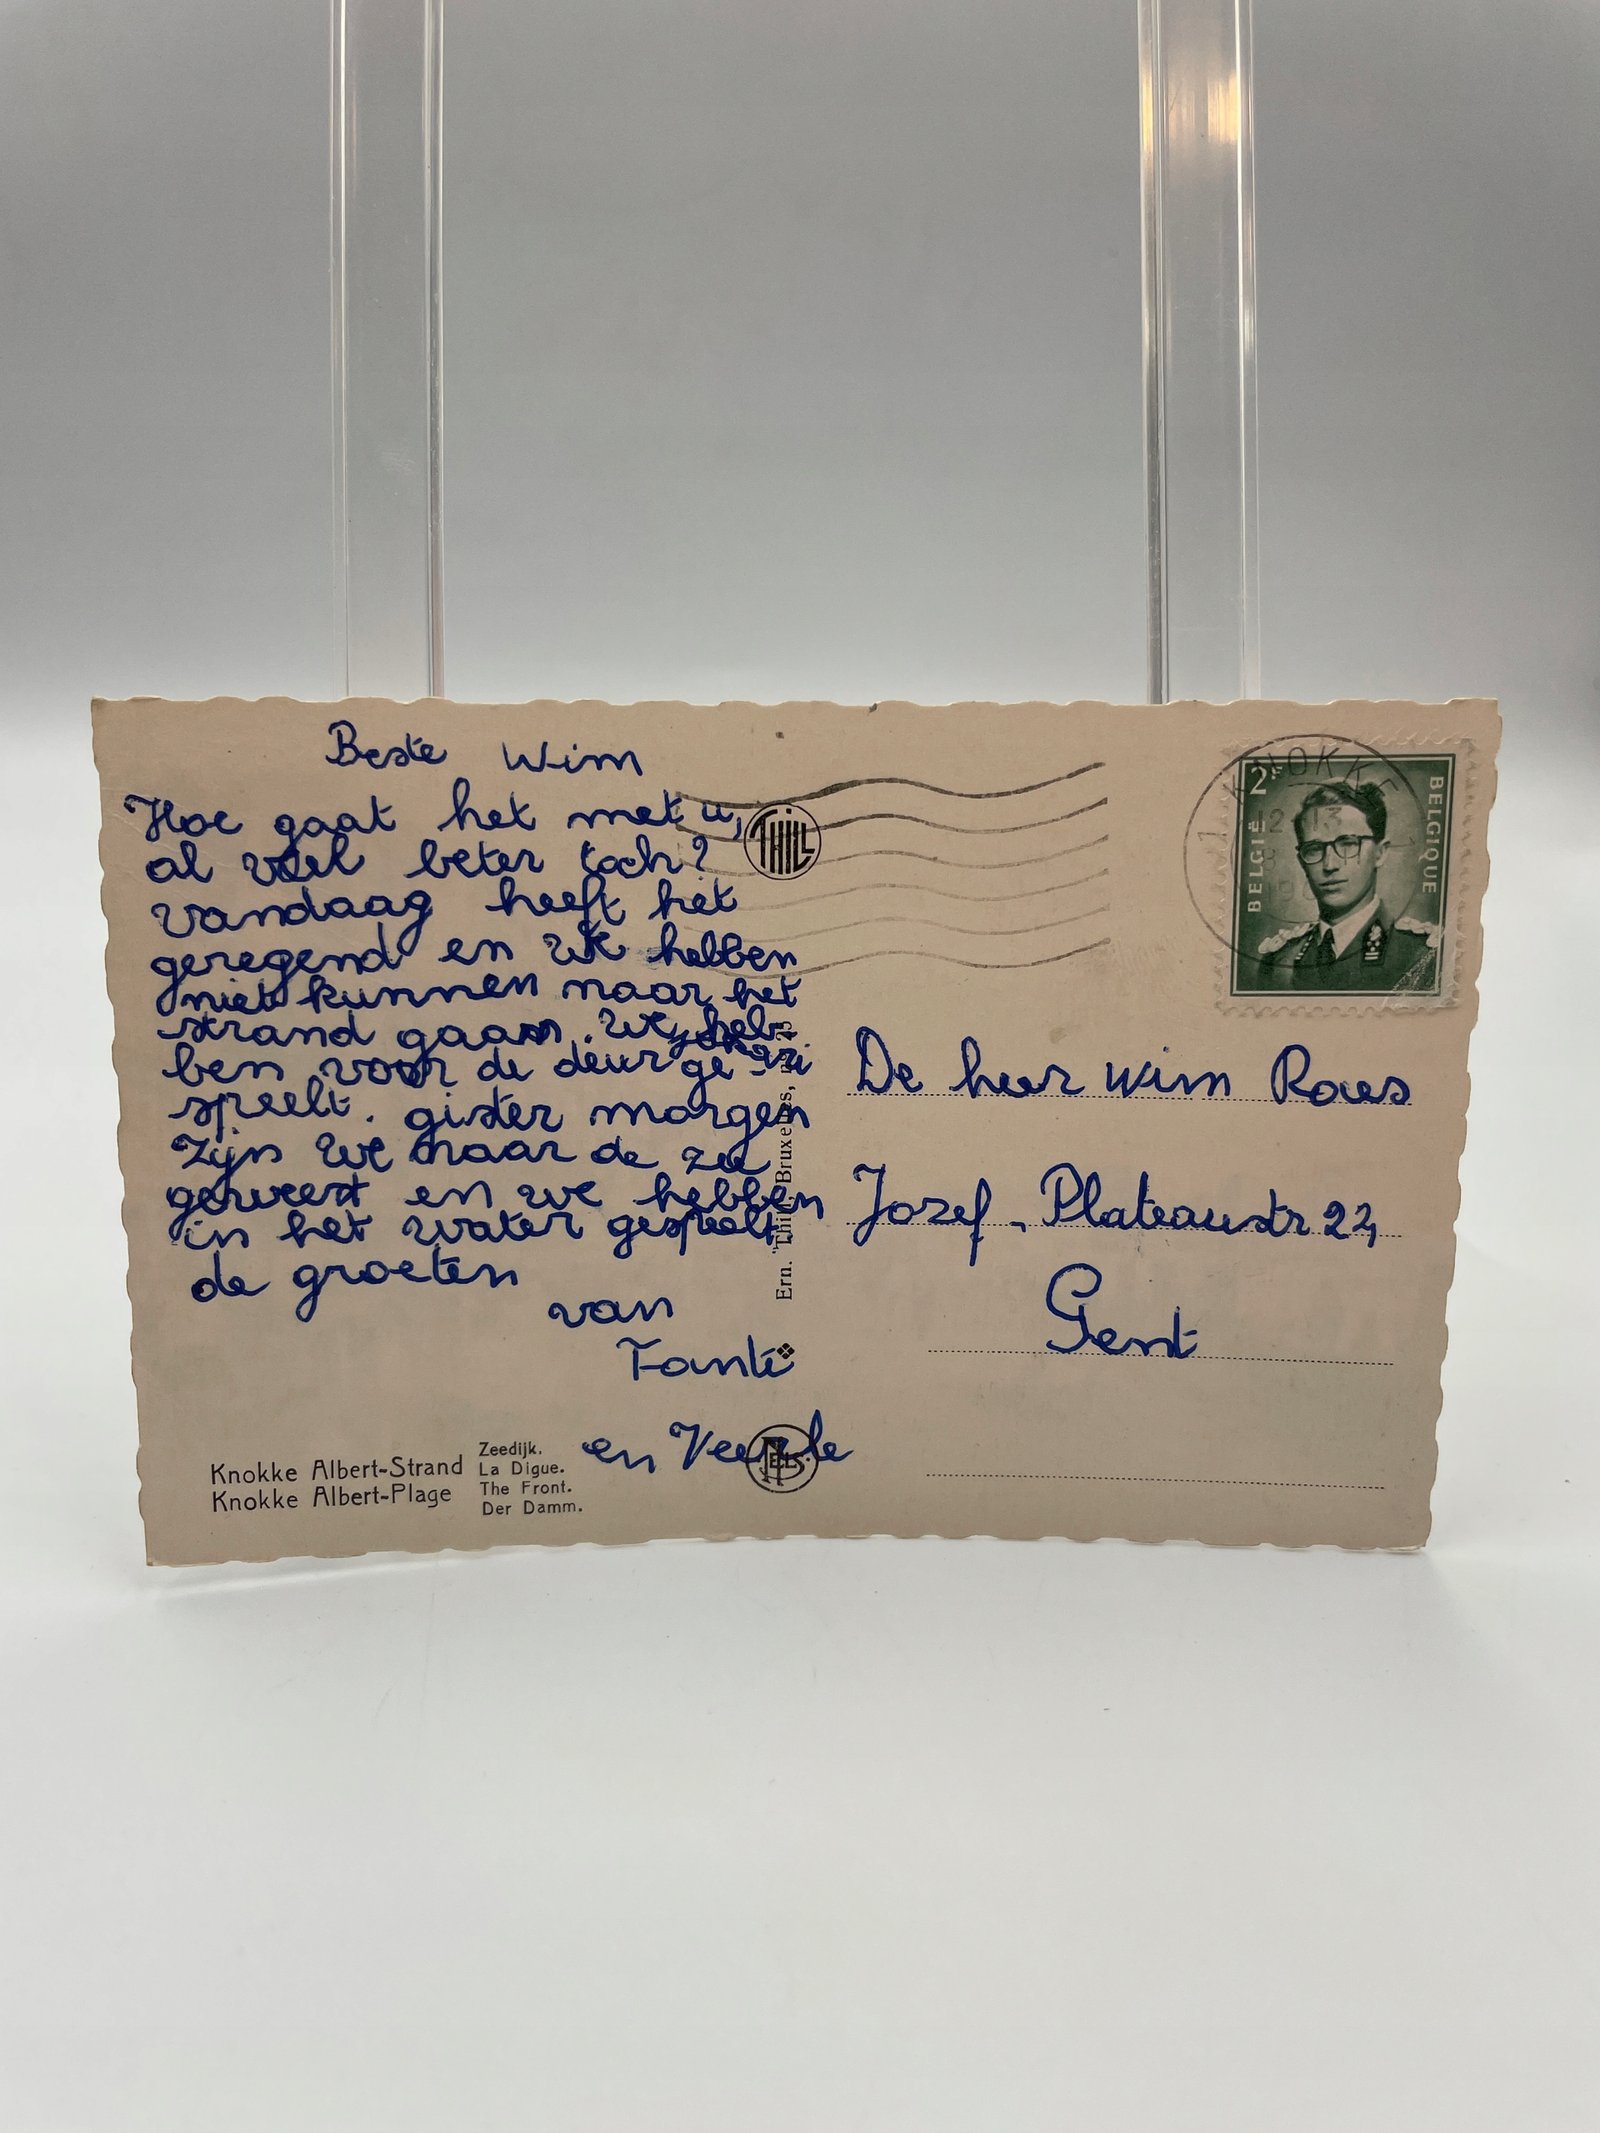 Beste Wim
Hoe gaat het met u,
al veel beter toch?
vandaag heeft het
geregend en we hebben
niet kunnen naar het
strand gaan. We heb-
ben voor de deur ge jokari
speelt. gister morgen
Zijn we naar de zee
geweest en we hebben
in het water gespeelt
de groeten
van
en Veerle
Knokke Albert-Strand
Knokke Albert-Plage
Zeedijk.
La Digue.
The Front.
Der Damm.
THILL
Ern. Thill, Bruxelles, n° 25
NELS
KNOKKE
1 1
12 - 13
2F
BELGIË
BELGIQUE
De heer Wim Roes
Jozef - Plateaustr 22,
Gent